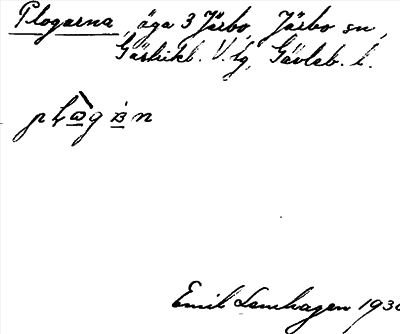 Plogarna, äga 3 Järbo, Järbo sn,
Gästrikl. V. tg, Gävleb. l.
Emil Lenhagen 193